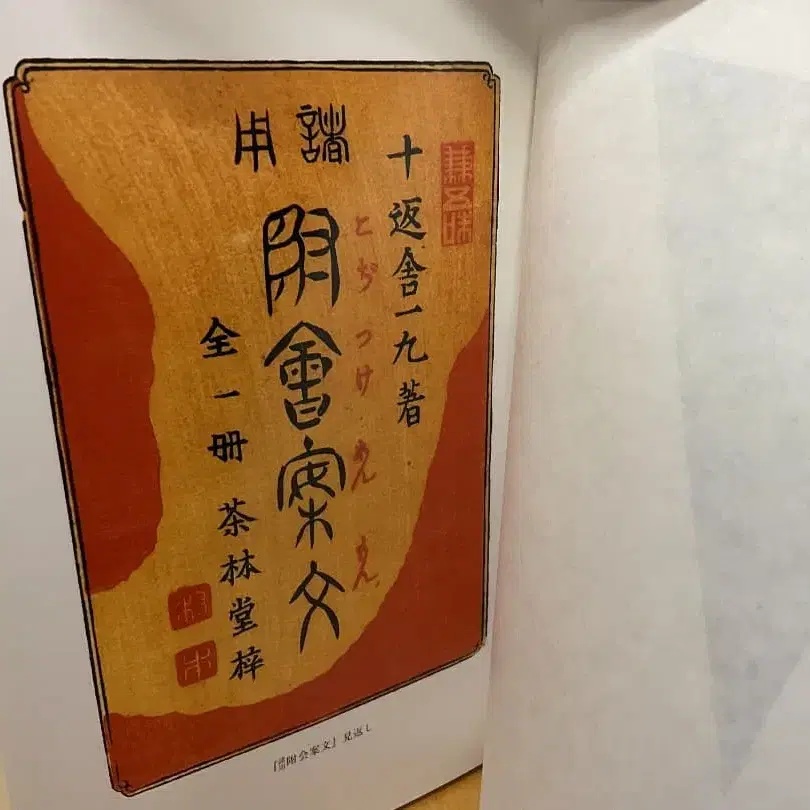 十返舎一九著
諸用
附會案文
こぢつけあんもん
全一冊
茶林堂梓
『諸用附会案文』見返し